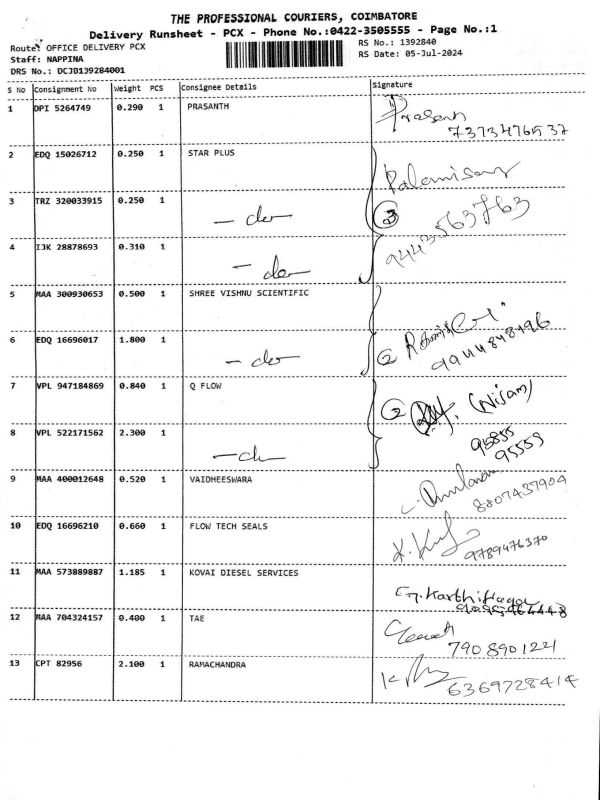 THE PROFESSIONAL COURIERS, COIMBATORE
Delivery Runsheet - PCX - Phone No.:0422-3505555 - Page No.:1
Route: OFFICE DELIVERY PCX
Staff: NAPPINA
DRS No.: DCJB139284001
RS No.: 1392840
RS Date: 05-Jul-2024
S No Consignment No Weight PCS Consignee Details Signature
1 DPI 5264749 0.290 1 PRASANTH Prasanth
7373476537
2 EDQ 15026712 0.250 1 STAR PLUS Palanisamy
3 TRZ 320033915 0.250 1 - do - 3 9443563763
4 IJK 28878693 0.310 1 - do -
5 MAA 300930653 0.500 1 SHREE VISHNU SCIENTIFIC
6 EDQ 16696017 1.800 1 - do - 2 9944848496
7 VPL 947184869 0.840 1 Q FLOW 2 (Nisam)
8 VPL 522171562 2.300 1 - do - 95855
95559
9 MAA 400012648 0.520 1 VAIDHEESWARA
8807437904
10 EDQ 16696210 0.660 1 FLOW TECH SEALS
9789476370
11 MAA 573889887 1.185 1 KOVAI DIESEL SERVICES
12 MAA 704324157 0.400 1 TAE
7908901221
13 CPT 82956 2.100 1 RAMACHANDRA
6369728414